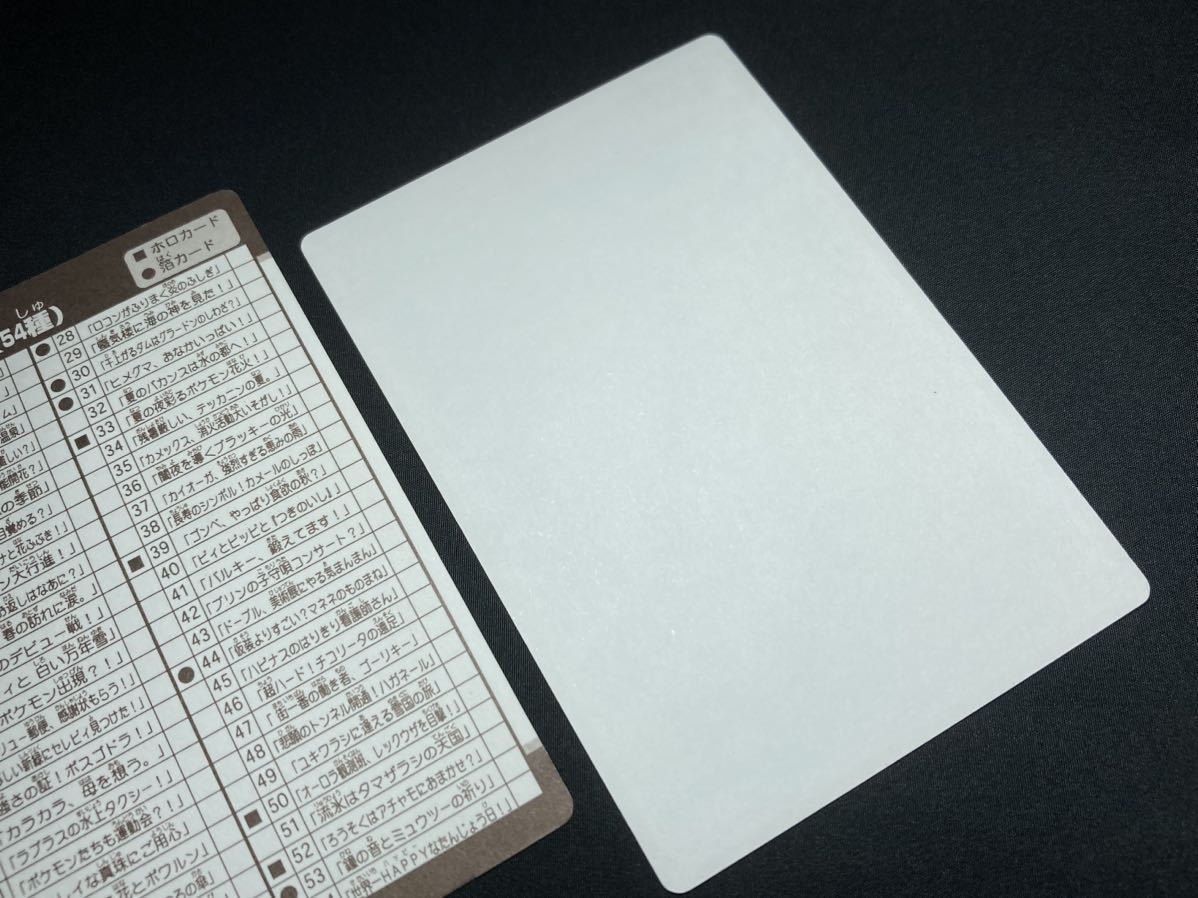 ■ ホロカード
● 箔カード
54種)
● 28 「ロコンがふりまく炎のふしぎ」
29 「蜃気楼に海の神を見た!」
● 30 「干上がるダムはグラードンのしわざ?」
● 31 「ヒメグマ、おなかいっぱい!」
32 「夏のバカンスは水の都へ!」
■ 33 「夏の夜彩るポケモン花火!」
34 「残暑厳しい、テッカニンの夏。」
35 「カメックス、消火活動大いそがし!」
36 「闇夜を導くブラッキーの光」
37 「カイオーガ、強烈すぎる恵みの雨」
38 「長寿のシンボル!カメールのしっぽ」
■ 39 「ゴンベ、やっぱり食欲の秋?」
40 「ピィとピッピと『つきのいし』」
41 「バルキー、鍛えてます!」
42 「プリンの子守唄コンサート?」
43 「ドーブル、美術展にやる気まんまん」
● 44 「仮装よりすごい?マネネのものまね」
45 「ハピナスのはりきり看護師さん」
46 「超ハード!チコリータの遠足」
47 「街一番の働き者、ゴーリキー」
48 「悲願のトンネル開通!ハガネール」
49 「ユキワラシに逢える雪国の旅」
■ 50 「オーロラ観測班、レックウザを目撃!」
51 「流氷はタマザラシの天国」
■ 52 「ろうそくはアチャモにおまかせ?」
● 53 「鐘の音とミュウツーの祈り」
「世界一HAPPYなたんじょう日!」
ム」
温泉」
の季節」
目覚める?」
ナと花ふぶき!」
ン大行進!」
返しはなあに?」
春の訪れに涙。」
のデビュー戦!」
ィと白い万年雪」
ポケモン出現?!」
リュー郵便、感謝状もらう!」
しい新緑にセレビィ見つけた!」
強さの証!ボスゴドラ!」
カラカラ、母を想う。」
「ラプラスの水上タクシー!」
「ポケモンたちも運動会?!」
レイな真珠にご用心」
花とポワルン」
ろの傘」